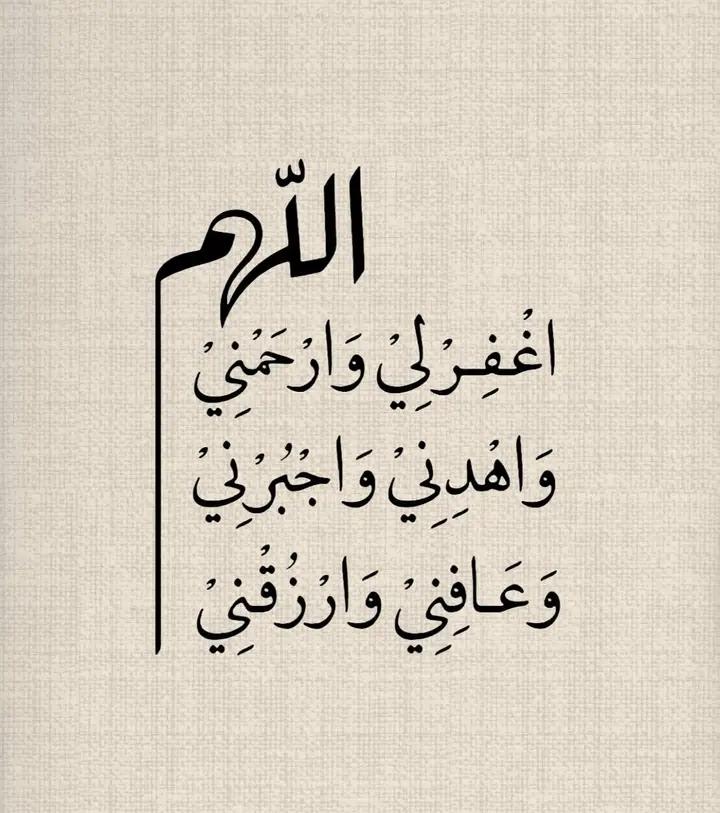 اللّهم
اغْفِرْ لِيْ وَارْحَمْنِيْ
وَاهْدِنِيْ وَاجْبُرْنِيْ
وَعَافِنِيْ وَارْزُقْنِيْ